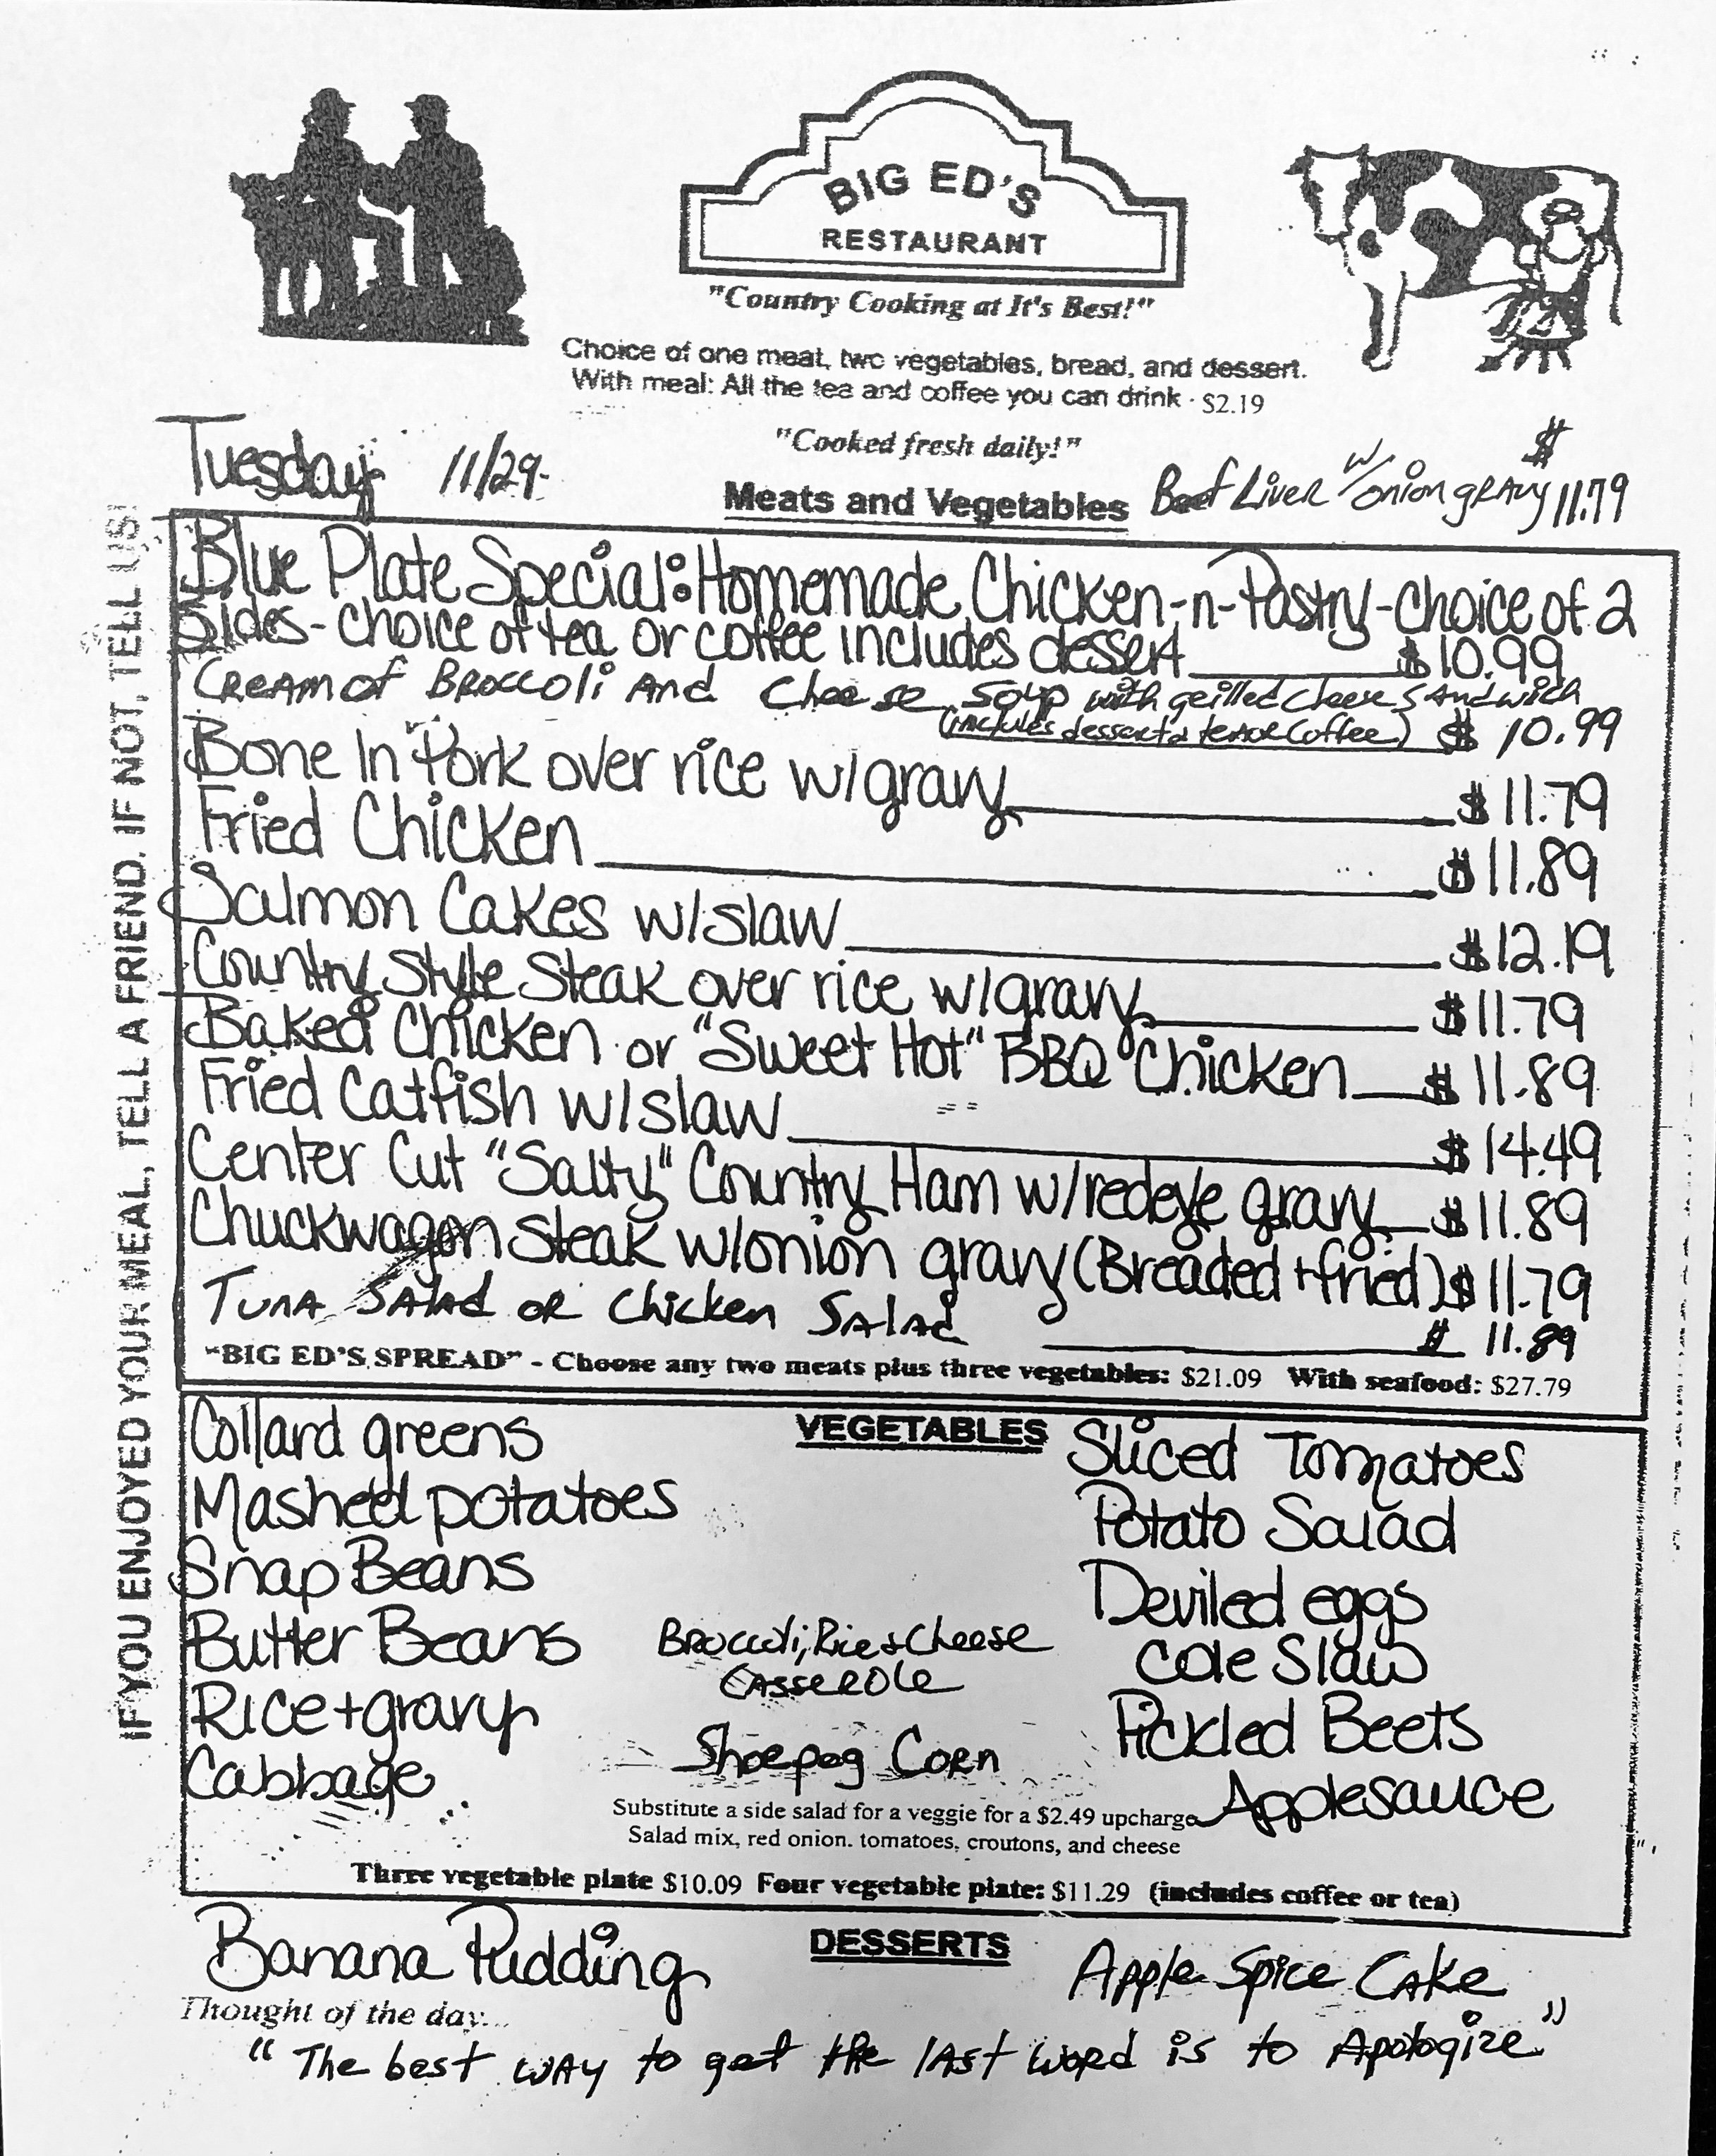 BIG ED'S
RESTAURANT
"Country Cooking at It's Best!"
Choice of one meat, two vegetables, bread, and dessert.
With meal: All the tea and coffee you can drink - $2.19
"Cooked fresh daily!"
Tuesday 11/29
Meats and Vegetables
Beef Liver w/onion gravy $11.79
IF YOU ENJOYED YOUR MEAL, TELL A FRIEND. IF NOT, TELL US!
Blue Plate Special: Homemade Chicken-n-Pastry-choice of 2
Sides-choice of tea or coffee includes dessert $10.99
Cream of Broccoli And Cheese Soup with grilled cheese Sandwich
(includes dessert & tea or Coffee) $10.99
Bone In Pork over rice w/gravy $11.79
Fried Chicken $11.89
Salmon Cakes w/slaw $12.19
Country Style Steak over rice w/gravy $11.79
Baked Chicken or "Sweet Hot" BBQ Chicken $11.89
Fried Catfish w/slaw $14.49
Center Cut "Salty" Country Ham w/redeye gravy $11.89
Chuckwagon Steak w/onion gravy (Breaded + fried) $11.79
Tuna Salad or Chicken Salad $11.89
"BIG ED'S SPREAD" - Choose any two meats plus three vegetables: $21.09 With seafood: $27.79
VEGETABLES
Collard greens
Mashed potatoes
Snap Beans
Butter Beans
Rice + gravy
Cabbage
Broccoli, Rice & Cheese
Casserole
Shoepeg Corn
Sliced Tomatoes
Potato Salad
Deviled eggs
Cole Slaw
Pickled Beets
Applesauce
Substitute a side salad for a veggie for a $2.49 upcharge
Salad mix, red onion. tomatoes, croutons, and cheese
Three vegetable plate $10.09 Four vegetable plate: $11.29 (includes coffee or tea)
DESSERTS
Banana Pudding
Apple Spice Cake
Thought of the day...
"The best way to get the last word is to Apologize"